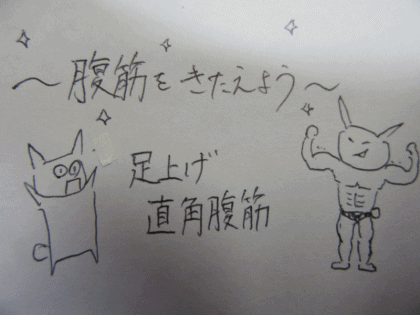 ～腹筋をきたえよう～
足上げ
直角腹筋